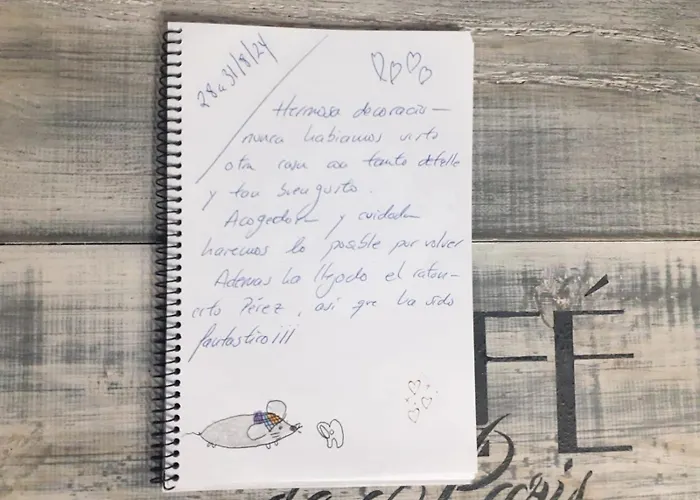 28 a 31/8/24
Hermosa decoración
nunca habiamos visto
otra casa con tanto detalle
y tan buen gusto.
Acogedora y cuidada
haremos lo posible por volver
Ademas ha llegado el raton-
cito Pérez, asi que ha sido
fantastico!!!
FÉ
Paris